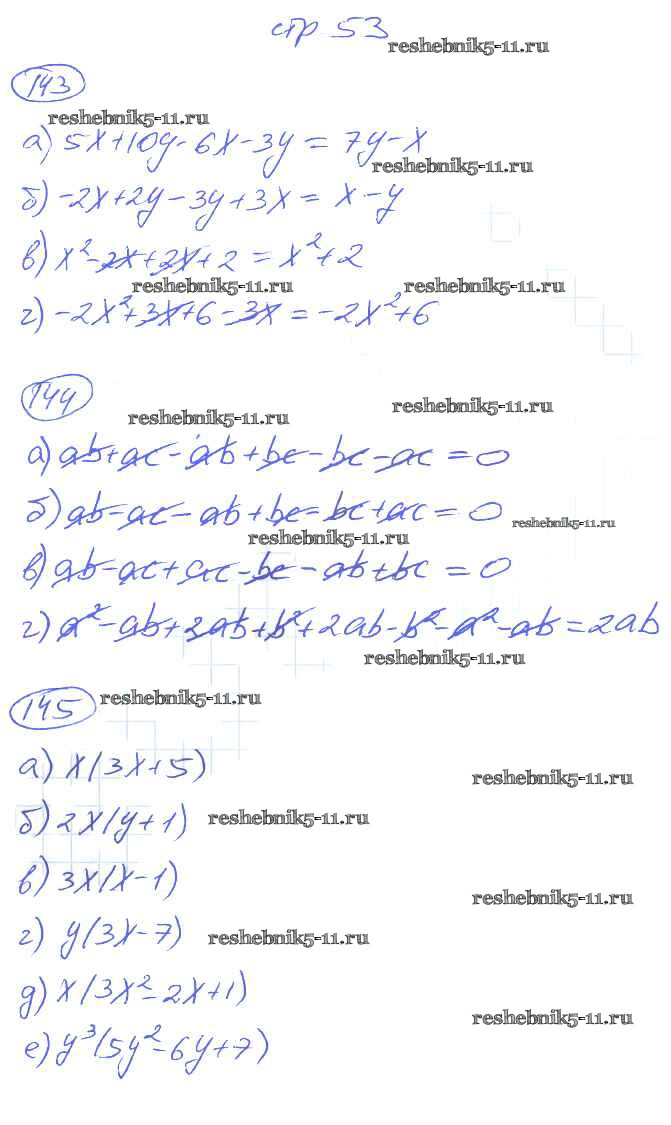 стр 53
reshebnik5-11.ru
143
reshebnik5-11.ru
а) 5x+10y-6x-3y = 7y-x
reshebnik5-11.ru
б) -2x+2y-3y+3x = x-y
в) x²-2x+2x+2 = x²+2
reshebnik5-11.ru reshebnik5-11.ru
г) -2x²+3x+6-3x = -2x²+6
144
reshebnik5-11.ru reshebnik5-11.ru
а) ab+ac-ab+bc-bc-ac = 0
б) ab-ac-ab+bc-bc+ac = 0
reshebnik5-11.ru
reshebnik5-11.ru
в) ab-ac+ac-bc-ab+bc = 0
г) a²-ab+2ab+b²+2ab-b²-a²-ab = 2ab
reshebnik5-11.ru
145
reshebnik5-11.ru
а) x(3x+5)
reshebnik5-11.ru
б) 2x(y+1)
reshebnik5-11.ru
в) 3x(x-1)
reshebnik5-11.ru
г) y(3x-7)
reshebnik5-11.ru
д) x(3x²-2x+1)
reshebnik5-11.ru
е) y³(5y²-6y+7)